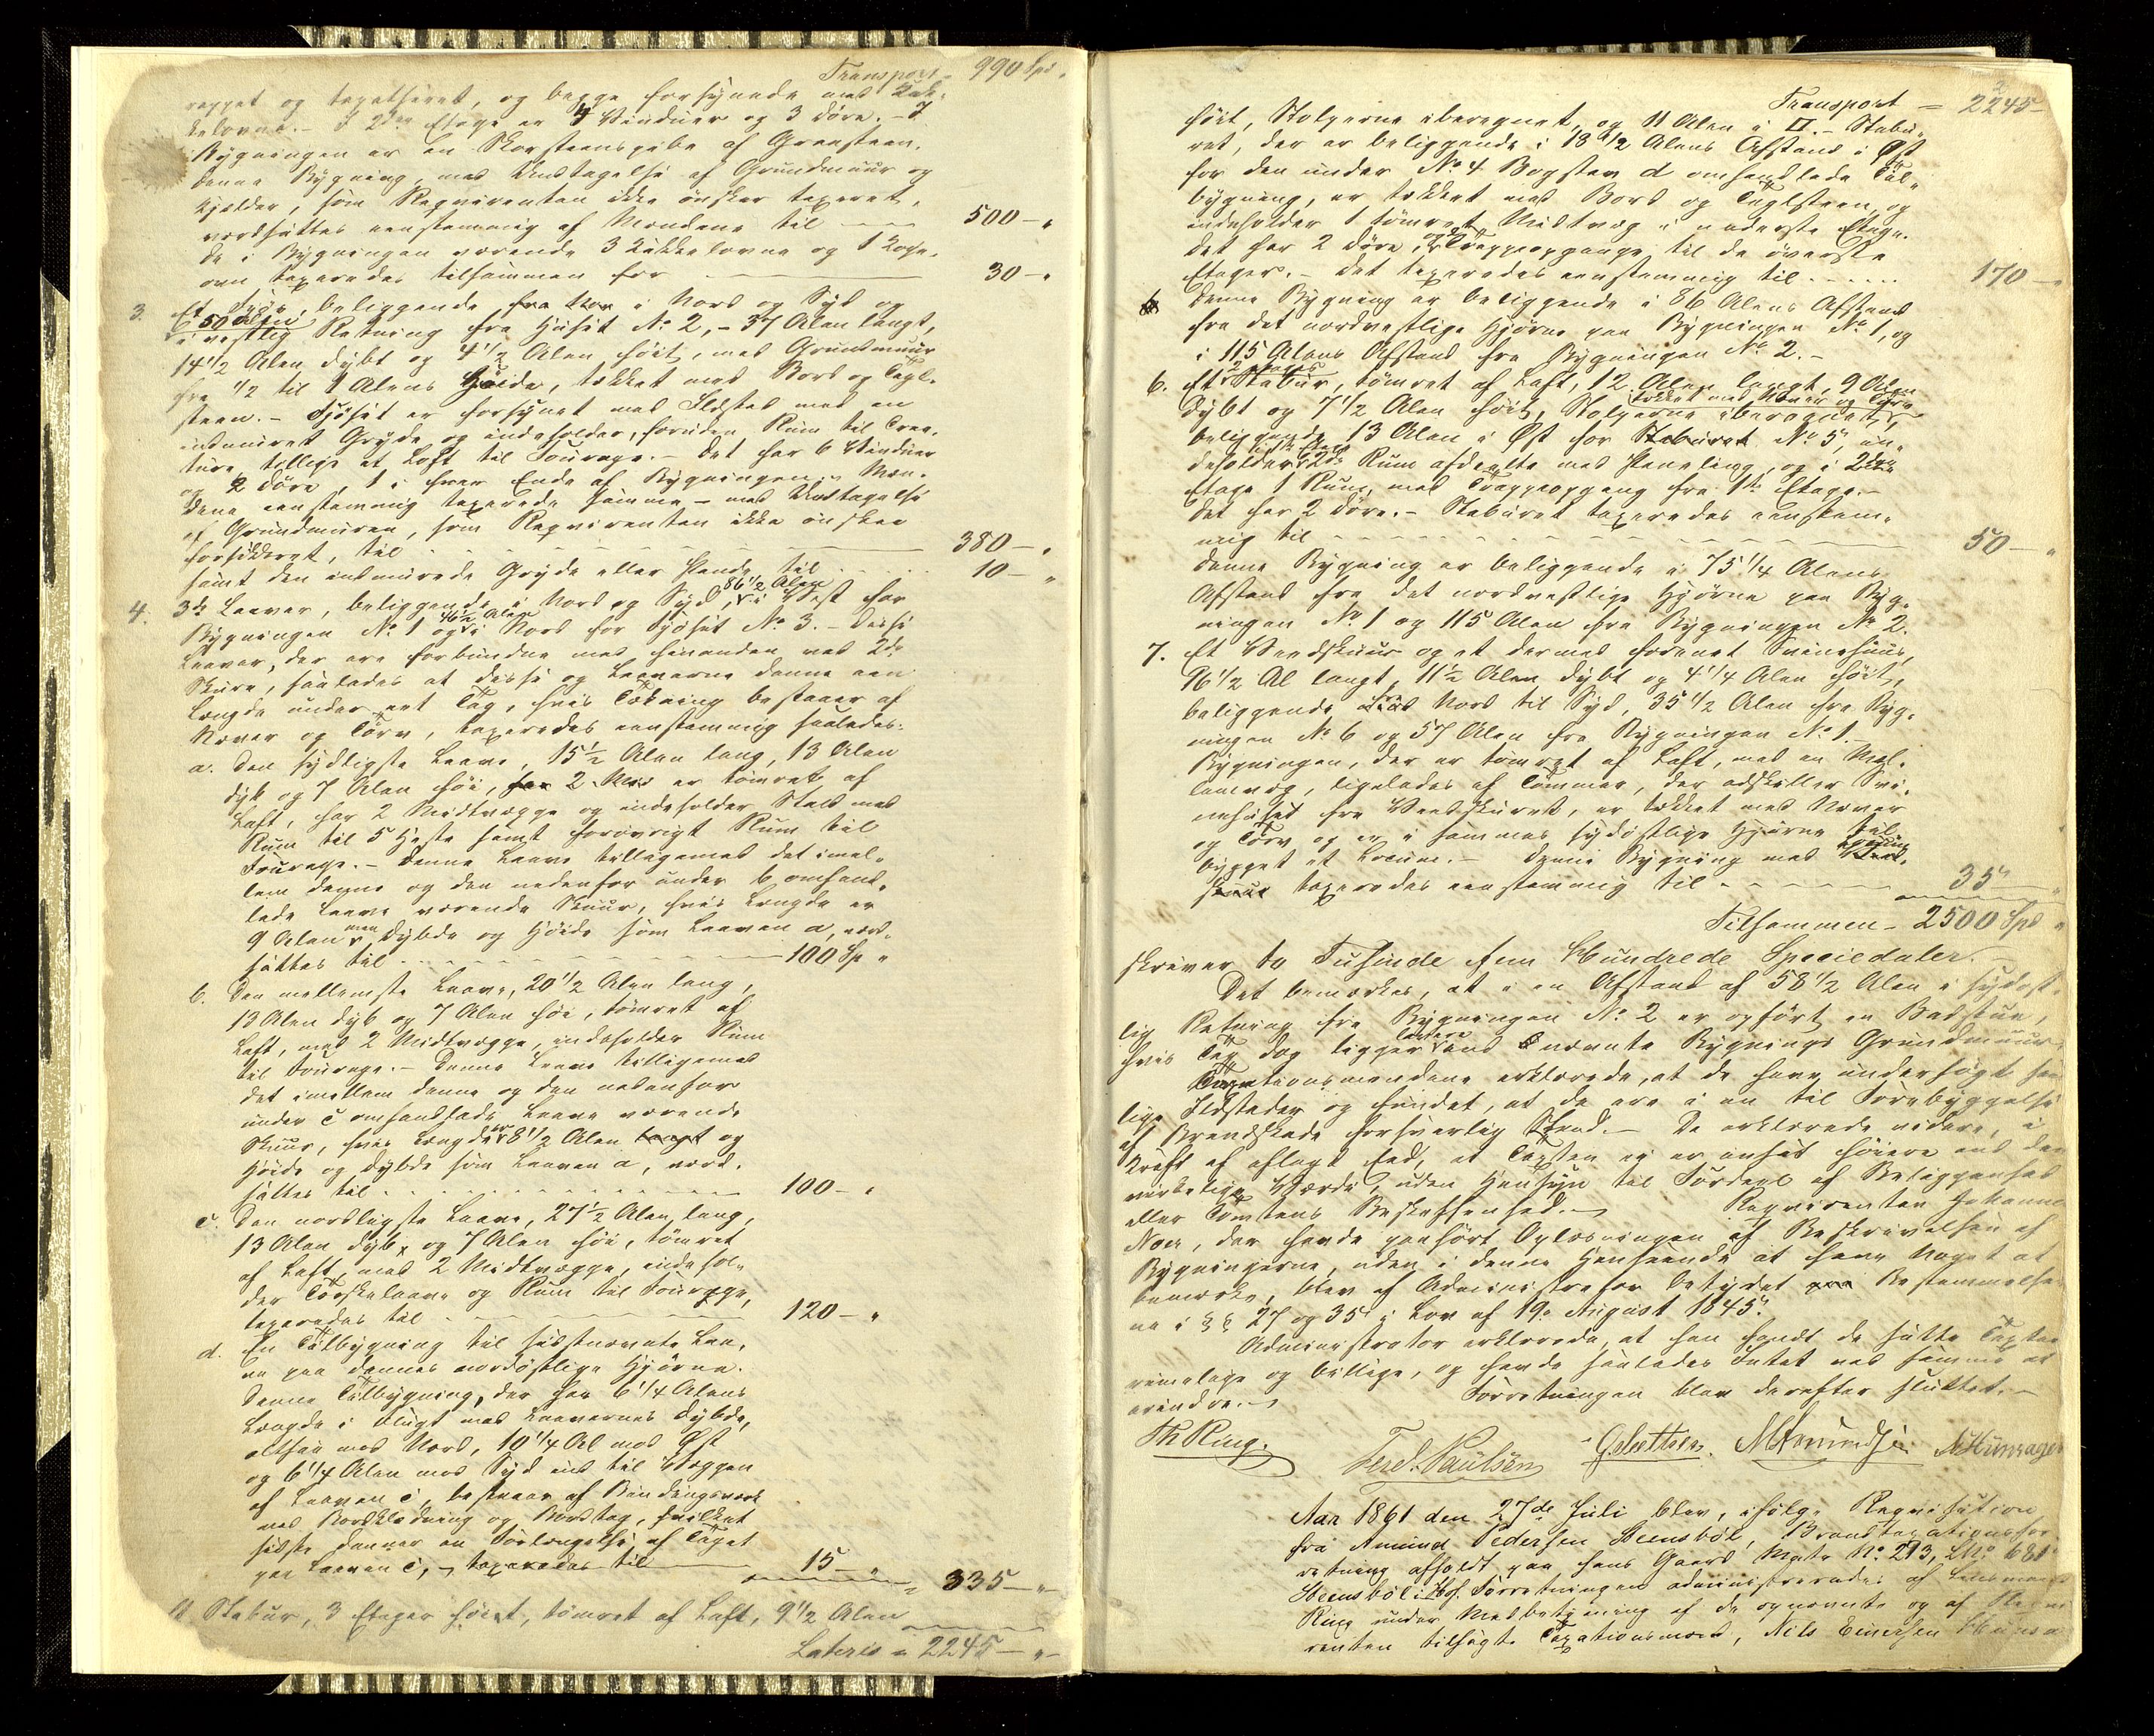 Transport - 990 Spd.
rappet og tapetseret, og begge forsynede med Kak-
kelovne. - I 2den Etage er 4 Vinduer og 3 Døre. - I
Bygningen er en Skorsteenspibe af Graasteen.
Denne Bygning, med Undtagelse af Grundmuur og
Kjelder, som Reqvirenten ikke ønsker taxeret,
værdsattes eenstemmig af Mændene til 500 - "
De i Bygningen værende 3 Kakkelovne og 1 Koge-
ovn taxeredes tilsammen for 30 - "
3. Et Fjøs, beliggende i Nord og Syd og
50 Alen i vestlig Retning fra Huset No 2, - 37 Alen langt,
14 1/2 Alen dybt og 4 1/2 Alen høit, med Grundmuur
fra 1/2 til 1 Alens Høide, tækket med Bord og Tegl-
steen. - Fjøset er forsynet med Ildsted med en
indmuret Gryde og indeholder, foruden Rum til Crea-
ture, tillige et Loft til Fourage. - Det har 6 Vinduer
og 2 Døre, 1 i hver Ende af Bygningen. Mæn-
dene eenstemmig taxerede samme - med Undtagelse
af Grundmuren, som Reqvirenten ikke ønsker
forsikkret, til 380 - "
samt den indmurede Gryde eller Pande til 10 - "
4. 3de Laaver, beliggende i Nord og Syd, 86 1/2 Alen i Vest for
Bygningen No 1 og 46 1/2 Alen i Nord for Fjøset No 3. - Disse
Laaver, der ere forbundne med hinanden ved 2de
Skure, saaledes at disse og Laaverne danne een
Længde under eet Tag, hvis Tækning bestaaer af
Næver og Törv, taxeredes eenstemmig saaledes:
a. Den sydligste Laave, 15 1/2 Alen lang, 13 Alen
dyb og 7 Alen høi, er tømret af
Laft, har 2 Midtvægge og indeholder Stald med
Rum til 5 Heste samt forøvrigt Rum til
Fourage. - Denne Laave tilligemed det imel-
lem denne og den nedenfor under b omhand-
lede Laave værende Skuur, hvis Længde er
9 Alen men Dybde og Høide som Laaven a, værd-
sattes til 100 Sp "
b. Den mellemste Laave, 20 1/2 Alen lang,
13 Alen dyb og 7 Alen høi, tømret af
Laft, med 2 Midtvægge, indeholder Rum
til Fourage. - Denne Laave tilligemed
det imellem denne og den nedenfor
under c omhandlede Laave værende
Skuur, hvis Længde er 8 1/2 Alen langt og
Høide og Dybde som Laaven a, værd-
sattes til 100 - "
c. Den nordligste Laave, 27 1/2 Alen lang,
13 Alen dyb, og 7 Alen høi, tømret
af Laft, med 2 Midtvægge, indehol-
der Tærskelaave og Rum til Fourage,
taxeredes til 120 - "
d. En Tilbygning til sidstnævnte Laa-
ve paa dennes nordøstlige Hjørne.
Denne Tilbygning, der har 6 1/4 Alens
Længde i Flugt med Laavernes Dybde,
altsaa mod Nord, 10 1/4 Al mod Øst
og 6 1/4 Alen mod Syd ind til Væggen
af Laaven c, bestaaer af Bindingsværk
med Bordklædning og Bordtag, hvilket
sidste danner en Forlængelse af Taget
paa Laaven c, taxeredes til 15 - " = 335 - "
Et Stabur, 3 Etager høiet, tømret af Laft, 9 1/2 Alen
Lateris = 2245 - "
Transport = 2245 -
høit, Stolperne iberegnet, og 11 Alen i □. - Stabu-
ret, der er beliggende i 18 1/2 Alens Afstand i Øst
for den under No 4 Bogstav d omhandlede Til-
bygning, er tækket med Bord og Teglsteen, og
indeholder 1 tømret Midtvæg i nederste Etage.
Det har 2 Døre, og Trappeopgange til de øverste
Etager. - Det taxeredes eenstemmig til 170 - "
Denne Bygning er beliggende i 86 Alens Afstand
fra det nordvestlige Hjørne paa Bygningen No 1, og
i 115 Alens Afstand fra Bygningen No 2. -
6. Et 2 Etages Stabur, tømret af Laft, 12 Alen langt, 9 Alen
dybt og 7 1/2 Alen høit, Stolperne iberegnet, tækket med Næver og Törv
beliggende 13 Alen i Øst for Staburet No 5, in-
deholder i 1ste Etage 2de Rum afdeelte med Paneling, og i 2den
Etage 1 Rum, med Trappeopgang fra 1ste Etage. -
Det har 2 Døre. - Staburet taxeredes eenstem-
mig til 50 - "
Denne Bygning er beliggende i 75 1/4 Alens
Afstand fra det nordvestlige Hjørne paa Byg-
ningen No 1 og 115 Alen fra Bygningen No 2.
7. Et Vedskuur og et dermed forenet Sviinehuus,
16 1/2 Al langt, 11 1/2 Alen dybt og 4 1/4 Alen høit,
beliggende fra Nord til Syd, 35 1/2 Alen fra Byg-
ningen No 6 og 57 Alen fra Bygningen No 1. -
Bygningen, der er tømret af Laft, med en Mel-
lemvæg, ligeledes af Tømmer, der adskiller Svi-
nehuset fra Vedskuret, er tækket med Næver
og Törv og er i sammes sydøstlige Hjørne til-
bygget et Locum. - Denne Bygning med
taxeredes eenstemmig til 35 "
Tilsammen - 2500 Spd "
skriver to Tusinde fem Hundrede Speciedaler. -
Det bemærkes, at i en Afstand af 58 1/2 Alen i sydøst-
lig Retning fra Bygningen No 2 er opført en Badstue,
hvis Tag dog ligger lavere end nævnte Bygnings Grundmuur
Taxationsmændene erklærede, at de have undersøgt
lige Ildsteder og fundet, at de ere i en til Forebyggelse
af Brandskade forsvarlig Stand. - De erklærede videre, i
Kraft af aflagt Eed, at Taxten ei er ansat høiere end den
virkelige Værdi, uden Hensyn til Fordeel af Beliggenhed
eller Tomtens Beskaffenhed. - Reqvirenten Johannes
Noer, der havde paahørt Oplæsningen af Beskrivelsen af
Bygningerne, uden i denne Henseende at have Noget at
bemærke, blev af Administrator betydet Bestemmelser
ne i §§ 27 og 35 i Lov af 19de August 1845.
Administrator erklærede, at han fandt de satte Taxter
rimelige og billige, og havde saaledes Intet ved samme at
erindre. - Forretningen blev derefter sluttet. -
Th Ring. Ferd. Paulsen MAmundsen
Aar 1861 den 27de Juli blev, ifølge Reqvisition
fra Amund Pedersen Steensbøl, Brandtaxationsfor-
retning afholdt paa hans Gaard Matr No. 213, LNo. 681
Steensbøl. Forretningen administreredes af Lensmand
Ring under Medbetjening af de opnævnte og af Reqvi
renten tilsagte Taxationsmænd, Nils Einersen